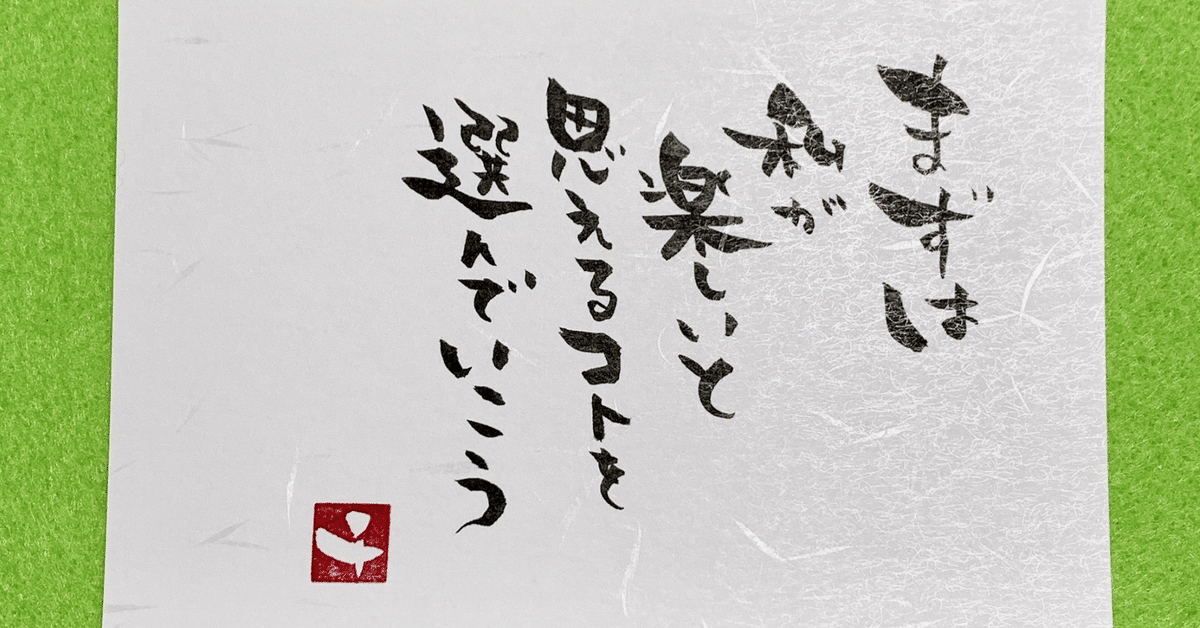 まずは
私が
楽しいと
思えるコトを
選んでいこう